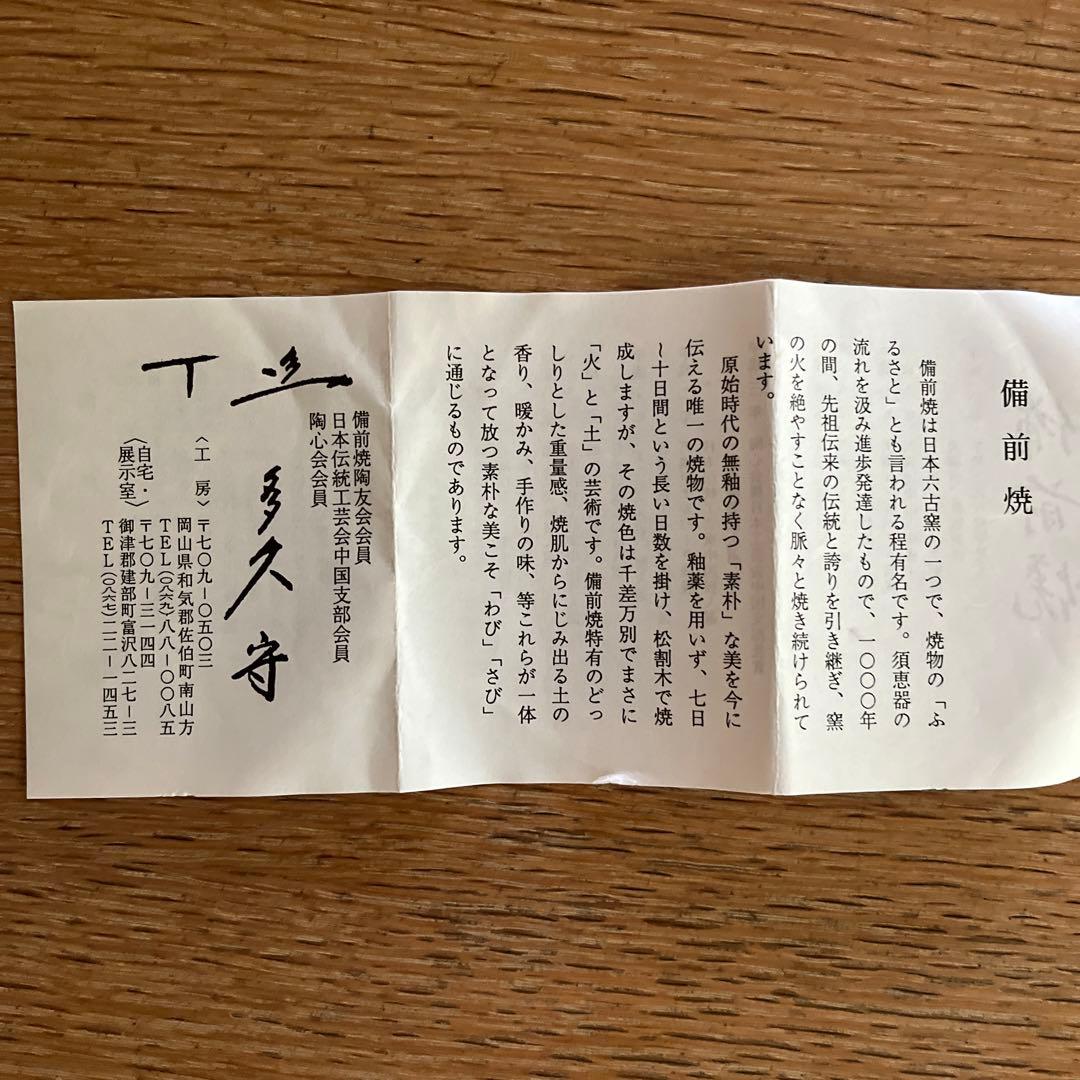 備前焼
備前焼は日本六古窯の一つで、焼物の「ふ
るさと」とも言われる程有名です。須恵器の
流れを汲み進歩発達したもので、一〇〇〇年
の間、先祖伝来の伝統と誇りを引き継ぎ、窯
の火を絶やすことなく脈々と焼き続けられて
います。
原始時代の無釉の持つ「素朴」な美を今に
伝える唯一の焼物です。釉薬を用いず、七日
〜十日間という長い日数を掛け、松割木で焼
成しますが、その焼色は千差万別でまさに
「火」と「土」の芸術です。備前焼特有のどっ
しりとした重量感、焼肌からにじみ出る土の
香り、暖かみ、手作りの味、等これらが一体
となって放つ素朴な美こそ「わび」「さび」
に通じるものであります。
備前焼陶友会会員
日本伝統工芸会中国支部会員
陶心会会員
多久守
〈工房〉〒七〇九－〇五〇三
岡山県和気郡佐伯町南山方
TEL(〇八六九)八八－〇〇八五
〈自宅・展示室〉〒七〇九－三一四四
御津郡建部町富沢八二七－三
TEL(〇八六七)二二－一四五三